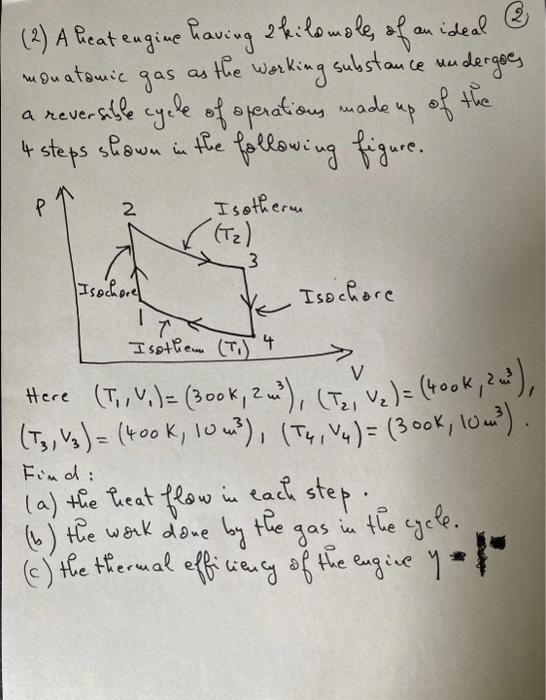 ②
(2) A heat engine having 2 kilomoles of an ideal
monatomic gas as the working substance undergoes
a reversible cycle of operations made up of the
4 steps shown in the following figure.
P
2
Isotherm
(T₂)
3
Isochore
Isochore
1
Isotherm (T₁)
4
V
Here (T₁, V₁) = (300K, 2m³), (T₂, V₂) = (400K, 2m³),
(T₃, V₃) = (400K, 10m³), (T₄, V₄) = (300K, 10m³).
Find:
(a) the heat flow in each step.
(b) the work done by the gas in the cycle.
(c) the thermal efficiency of the engine η =